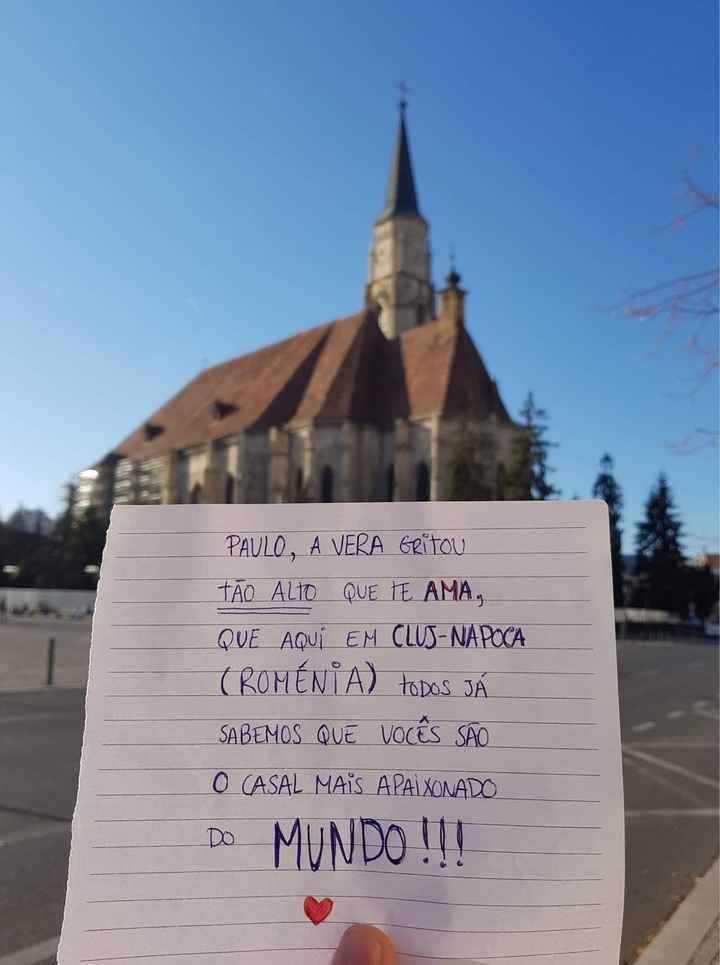 PAULO, A VERA GRITOU
TÃO ALTO QUE TE AMA,
QUE AQUI EM CLUJ-NAPOCA
(ROMÉNIA) TODOS JÁ
SABEMOS QUE VOCÊS SÃO
O CASAL MAIS APAIXONADO
DO MUNDO!!!